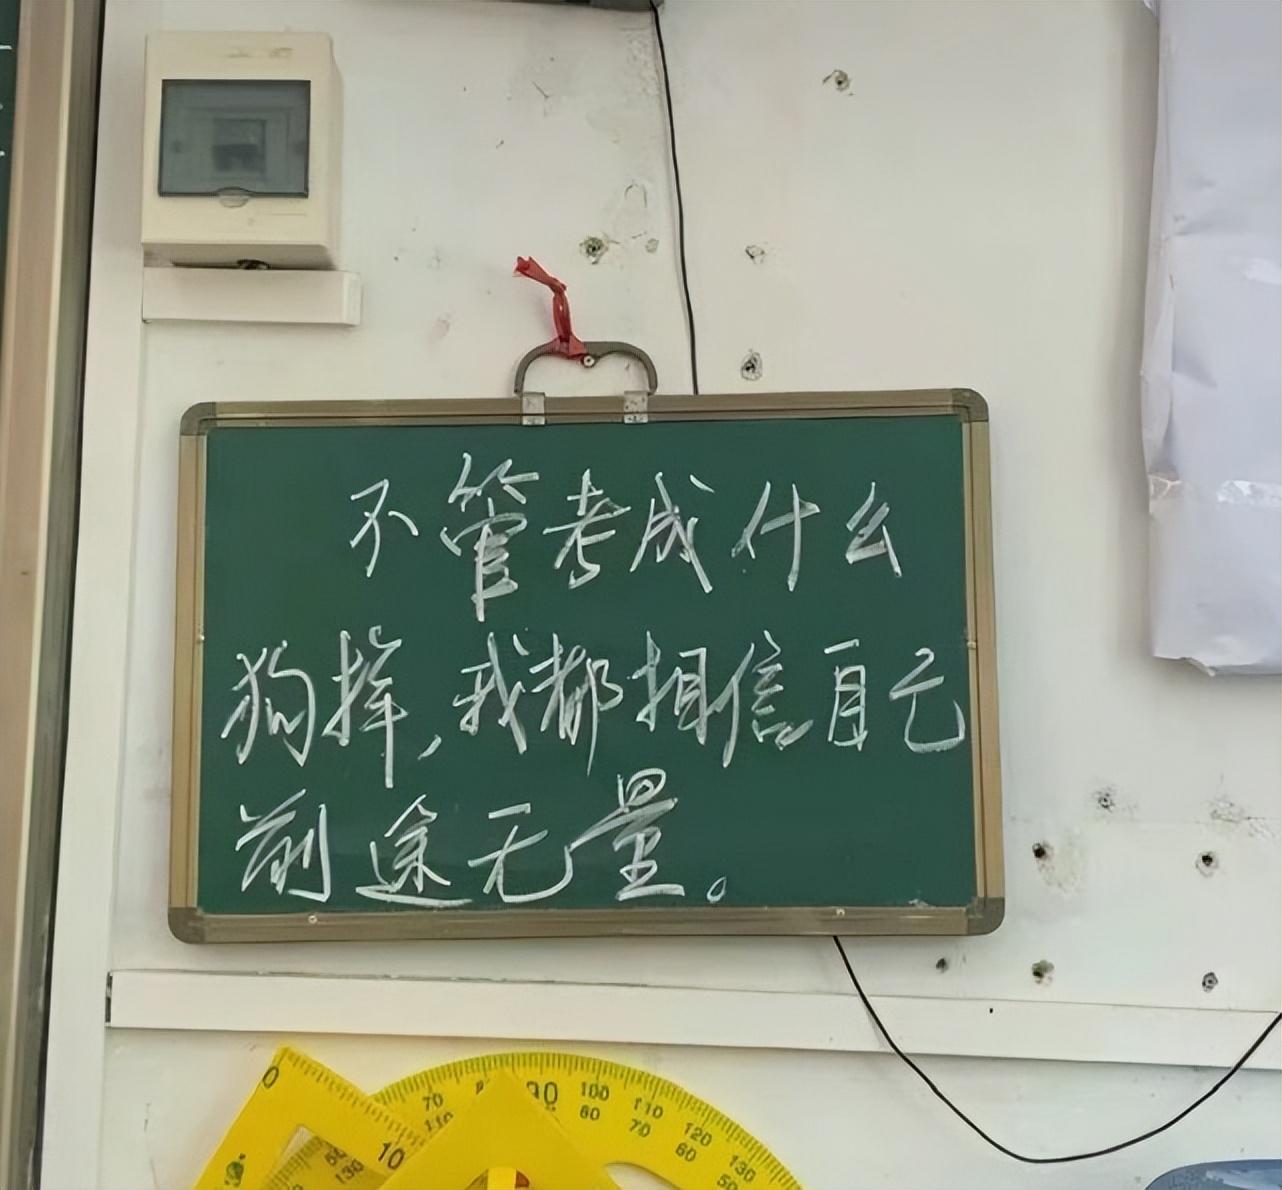 不管考成什么
狗样,我都相信自己
前途无量。
0
10
70
110
90
100
80
110
70
120
60
130
50
50
130